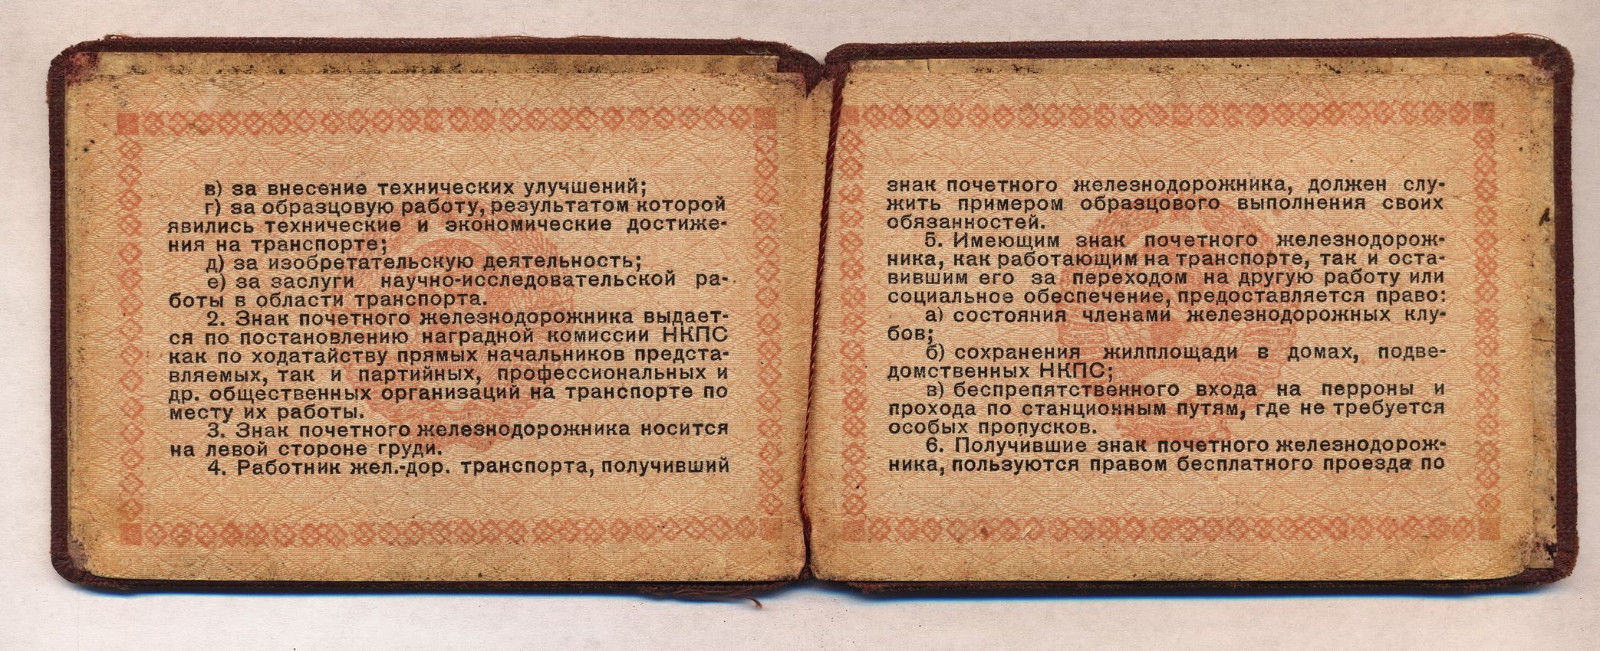 в) за внесение технических улучшений;
г) за образцовую работу, результатом которой
явились технические и экономические достиже-
ния на транспорте;
д) за изобретательскую деятельность;
е) за заслуги научно-исследовательской ра-
боты в области транспорта.
2. Знак почетного железнодорожника выдает-
ся по постановлению наградной комиссии НКПС
как по ходатайству прямых начальников предста-
вляемых, так и партийных, профессиональных и
др. общественных организаций на транспорте по
месту их работы.
3. Знак почетного железнодорожника носится
на левой стороне груди.
4. Работник жел.-дор. транспорта, получивший
знак почетного железнодорожника, должен слу-
жить примером образцового выполнения своих
обязанностей.
5. Имеющим знак почетного железнодорож-
ника, как работающим на транспорте, так и оста-
вившим его за переходом на другую работу или
социальное обеспечение, предоставляется право:
а) состояния членами железнодорожных клу-
бов;
б) сохранения жилплощади в домах, подве-
домственных НКПС;
в) беспрепятственного входа на перроны и
прохода по станционным путям, где не требуется
особых пропусков.
6. Получившие знак почетного железнодорож-
ника, пользуются правом бесплатного проезда по